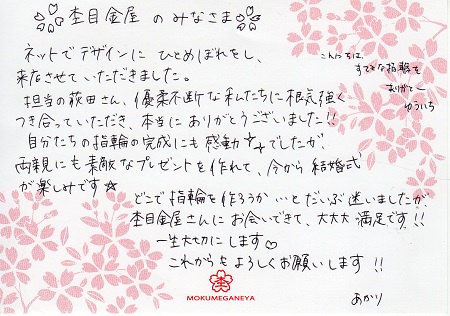 杢目金屋 のみなさま
ネットでデザインに ひとめぼれをし、
来店させていただきました。
担当の荻田さん、優柔不断な私たちに根気強く
つき合っていただき、本当にありがとうございました!!
自分たちの指輪の完成にも感動☆でしたが
両親にも素敵なプレゼントを作れて、今から結婚式
が楽しみです☆
どこで指輪を作ろうか…とだいぶ迷いましたが、
杢目金屋さんにお会いできて、大大大満足です!!
一生大切にします♡
これからもよろしくお願いします!!
あかり
こんにちは、
すてきな指輪を
ありがとー
ゆういち
MOKUMEGANEYA